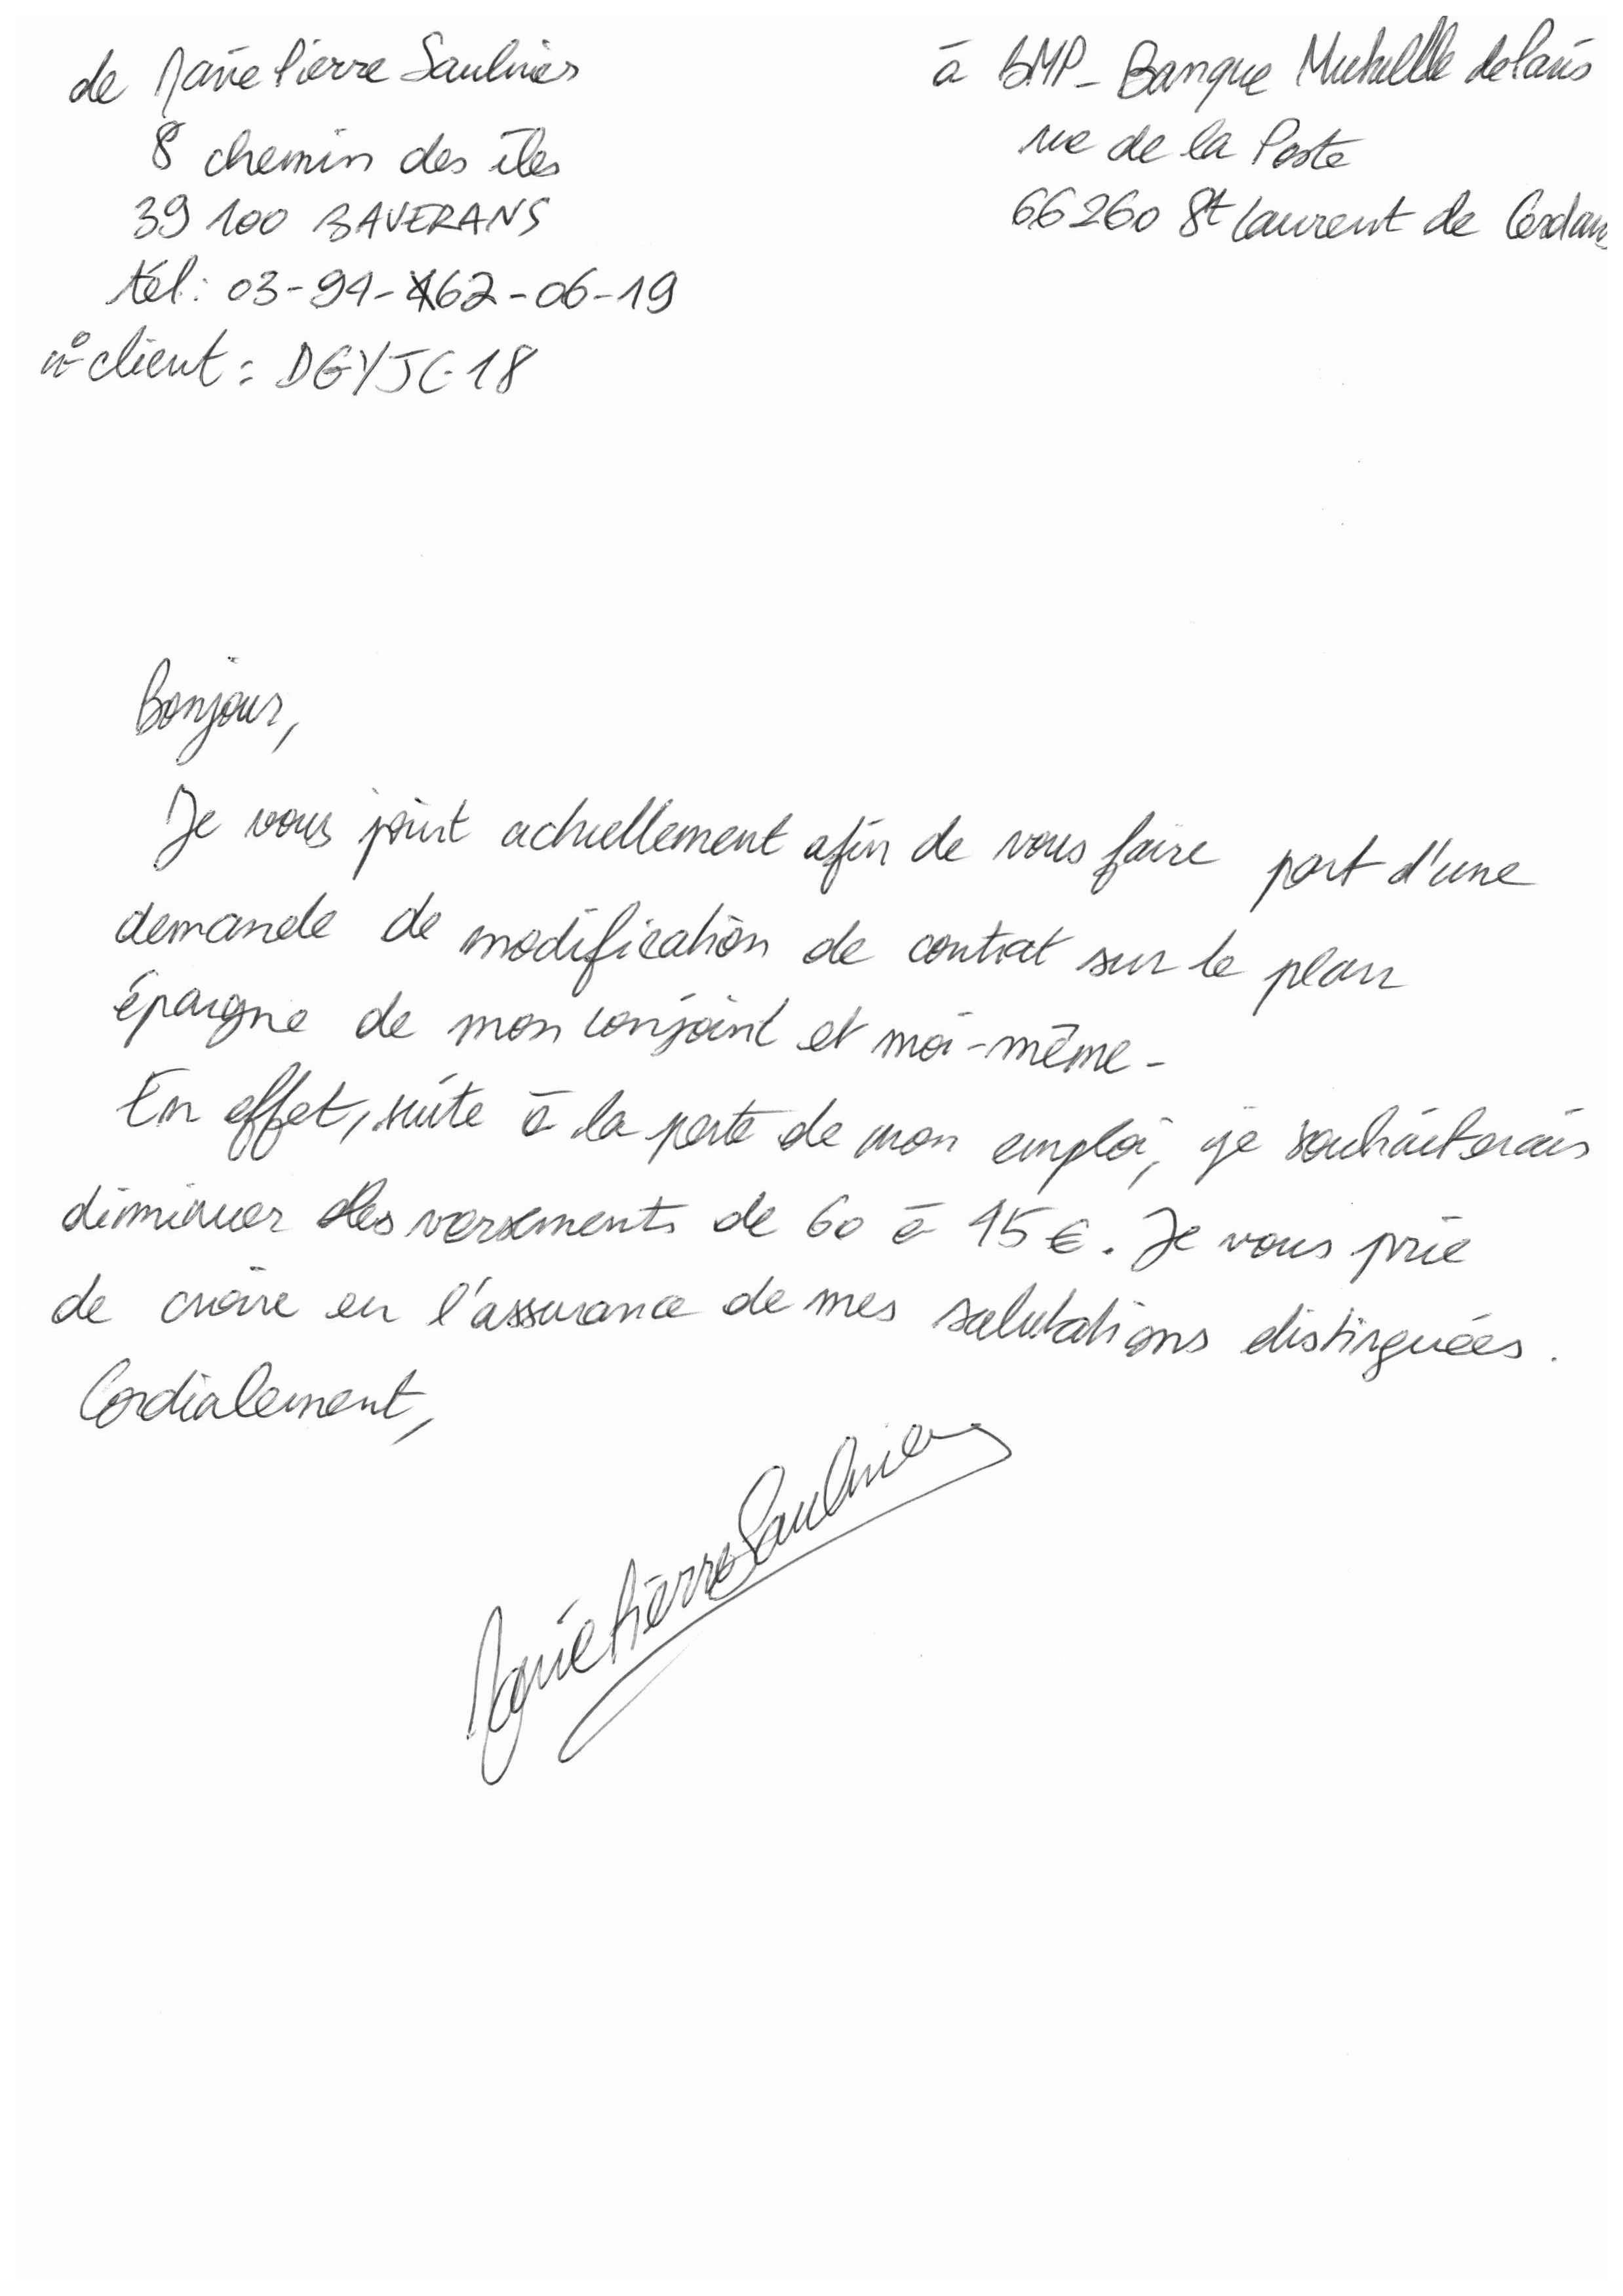 de Marie Pierre Saulnier
8 chemin des îles
39 100 BAVERANS
tél: 03-94-62-06-19
n° client: DGYJC18
à BMP- Banque Mutuelle de Paris
rue de la Poste
66260 St Laurent de
Bonjour,
Je vous joint actuellement afin de vous faire part d'une
demande de modification de contrat sur le plan
épargne de mon conjoint et moi-même-
En effet, suite à la perte de mon emploi, je souhaiterais
diminuer les versements de 60 à 45€. Je vous prie
de croire en l'assurance de mes salutations distinguées.
Cordialement,
Marie Pierre Saulnier